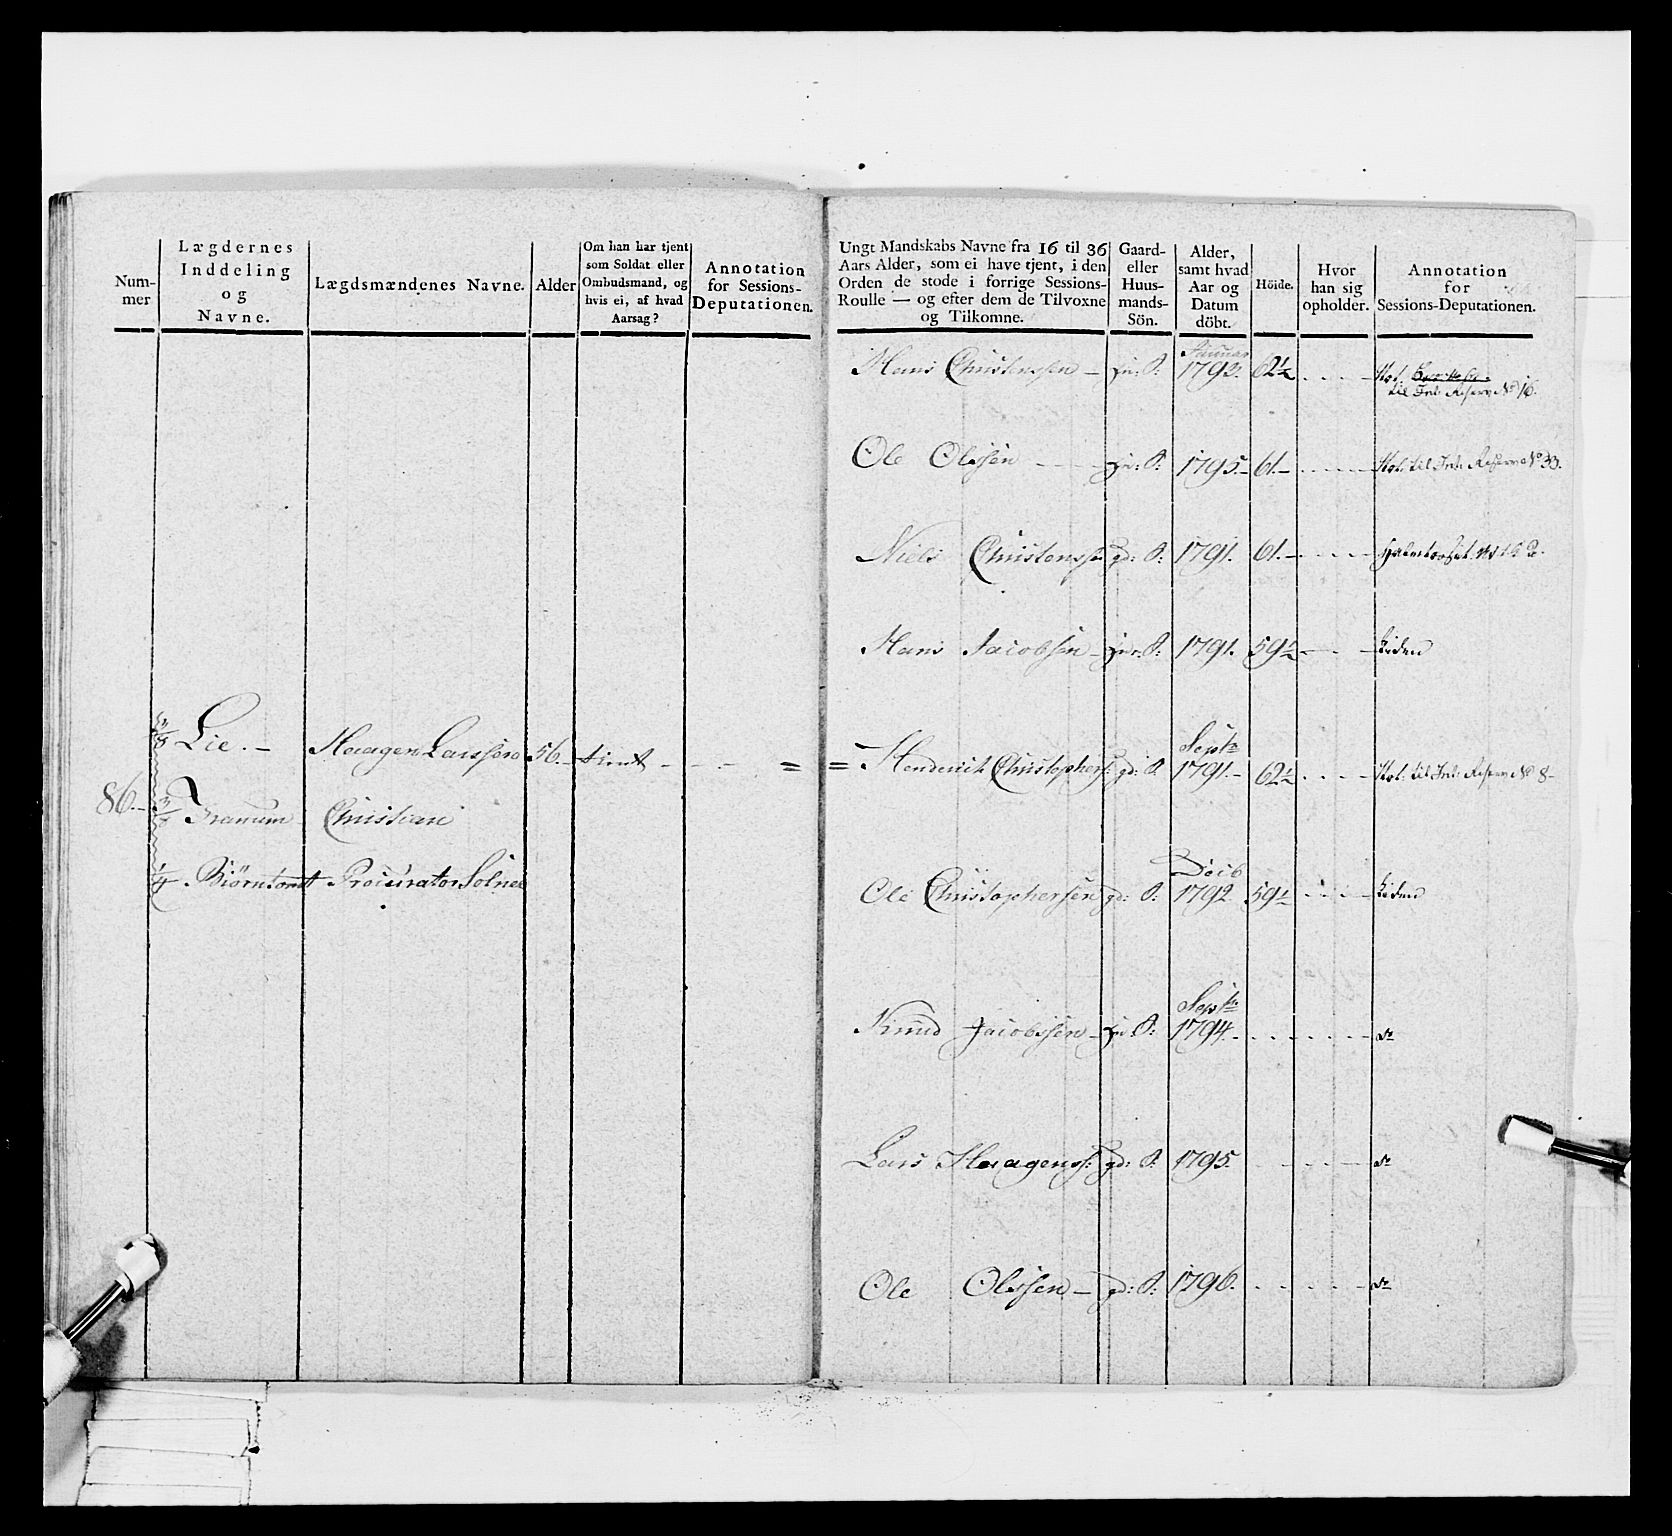 Num-
mer
Lægdernes
Inddeling
og
Navne.
Lægdsmændenes Navne.
Alder
Om han har tjent
som Soldat eller
Ombudsmand, og
hvis ei, af hvad
Aarsag?
Annotation
for Sessions-
Deputationen.
86.
Lie. Haagen Larssen 56. tient
Tranum Christian
1/4 Biörntomt Procurator Solnes
Ungt Mandskabs Navne fra 16 til 36
Aars Alder, som ei have tjent, i den
Orden de stode i forrige Sessions-
Roulle — og efter dem de Tilvoxne
og Tilkomne.
Gaard-
eller
Huus-
mands-
Sön.
Alder,
samt hvad
Aar og
Datum
döbt.
Höide.
Hvor
han sig
opholder.
Annotation
for
Sessions-Deputationen.
Januar
Hans Christenssen 1792. 62½
til Int: Reserv No 16.
Ole Olssen 1795. 61. til Int: Reserve No 33.
Niels Christenss: gd: S: 1791. 61.
Hans Jacobsen 1791. 59½ Liden
Septr
Henderich Christophers: gd: S: 1791. 62½ til Int: Reserv No 8
Ole Christophersen gd: S: 1792. 59½ Liden
Septr
Knud Jacobsen 1794. do
Lars Haagenss: gd: S: 1795. do
Ole Olssen gd: S: 1796. do